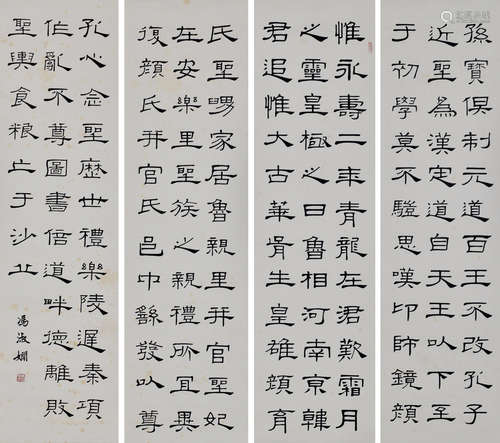 孫寶俱制元道百王不改孔子
近聖為漢定道自天王以下至
于初學莫不驥思嘆卬師鏡顔
惟永壽二年青龍在君歎霜月
之靈皇極之日魯相河南京韓
君追惟大古華胥生皇雄顔育
氏聖舅家居魯親里并官聖妃
在安樂里聖族之親禮所宜異
復顔氏并官氏邑中繇發以尊
孔心念聖歷世禮樂陵遲秦項
作亂不尊圖書倍道畔德離敗
聖輿食糧亡于沙丘
馮淑嫻